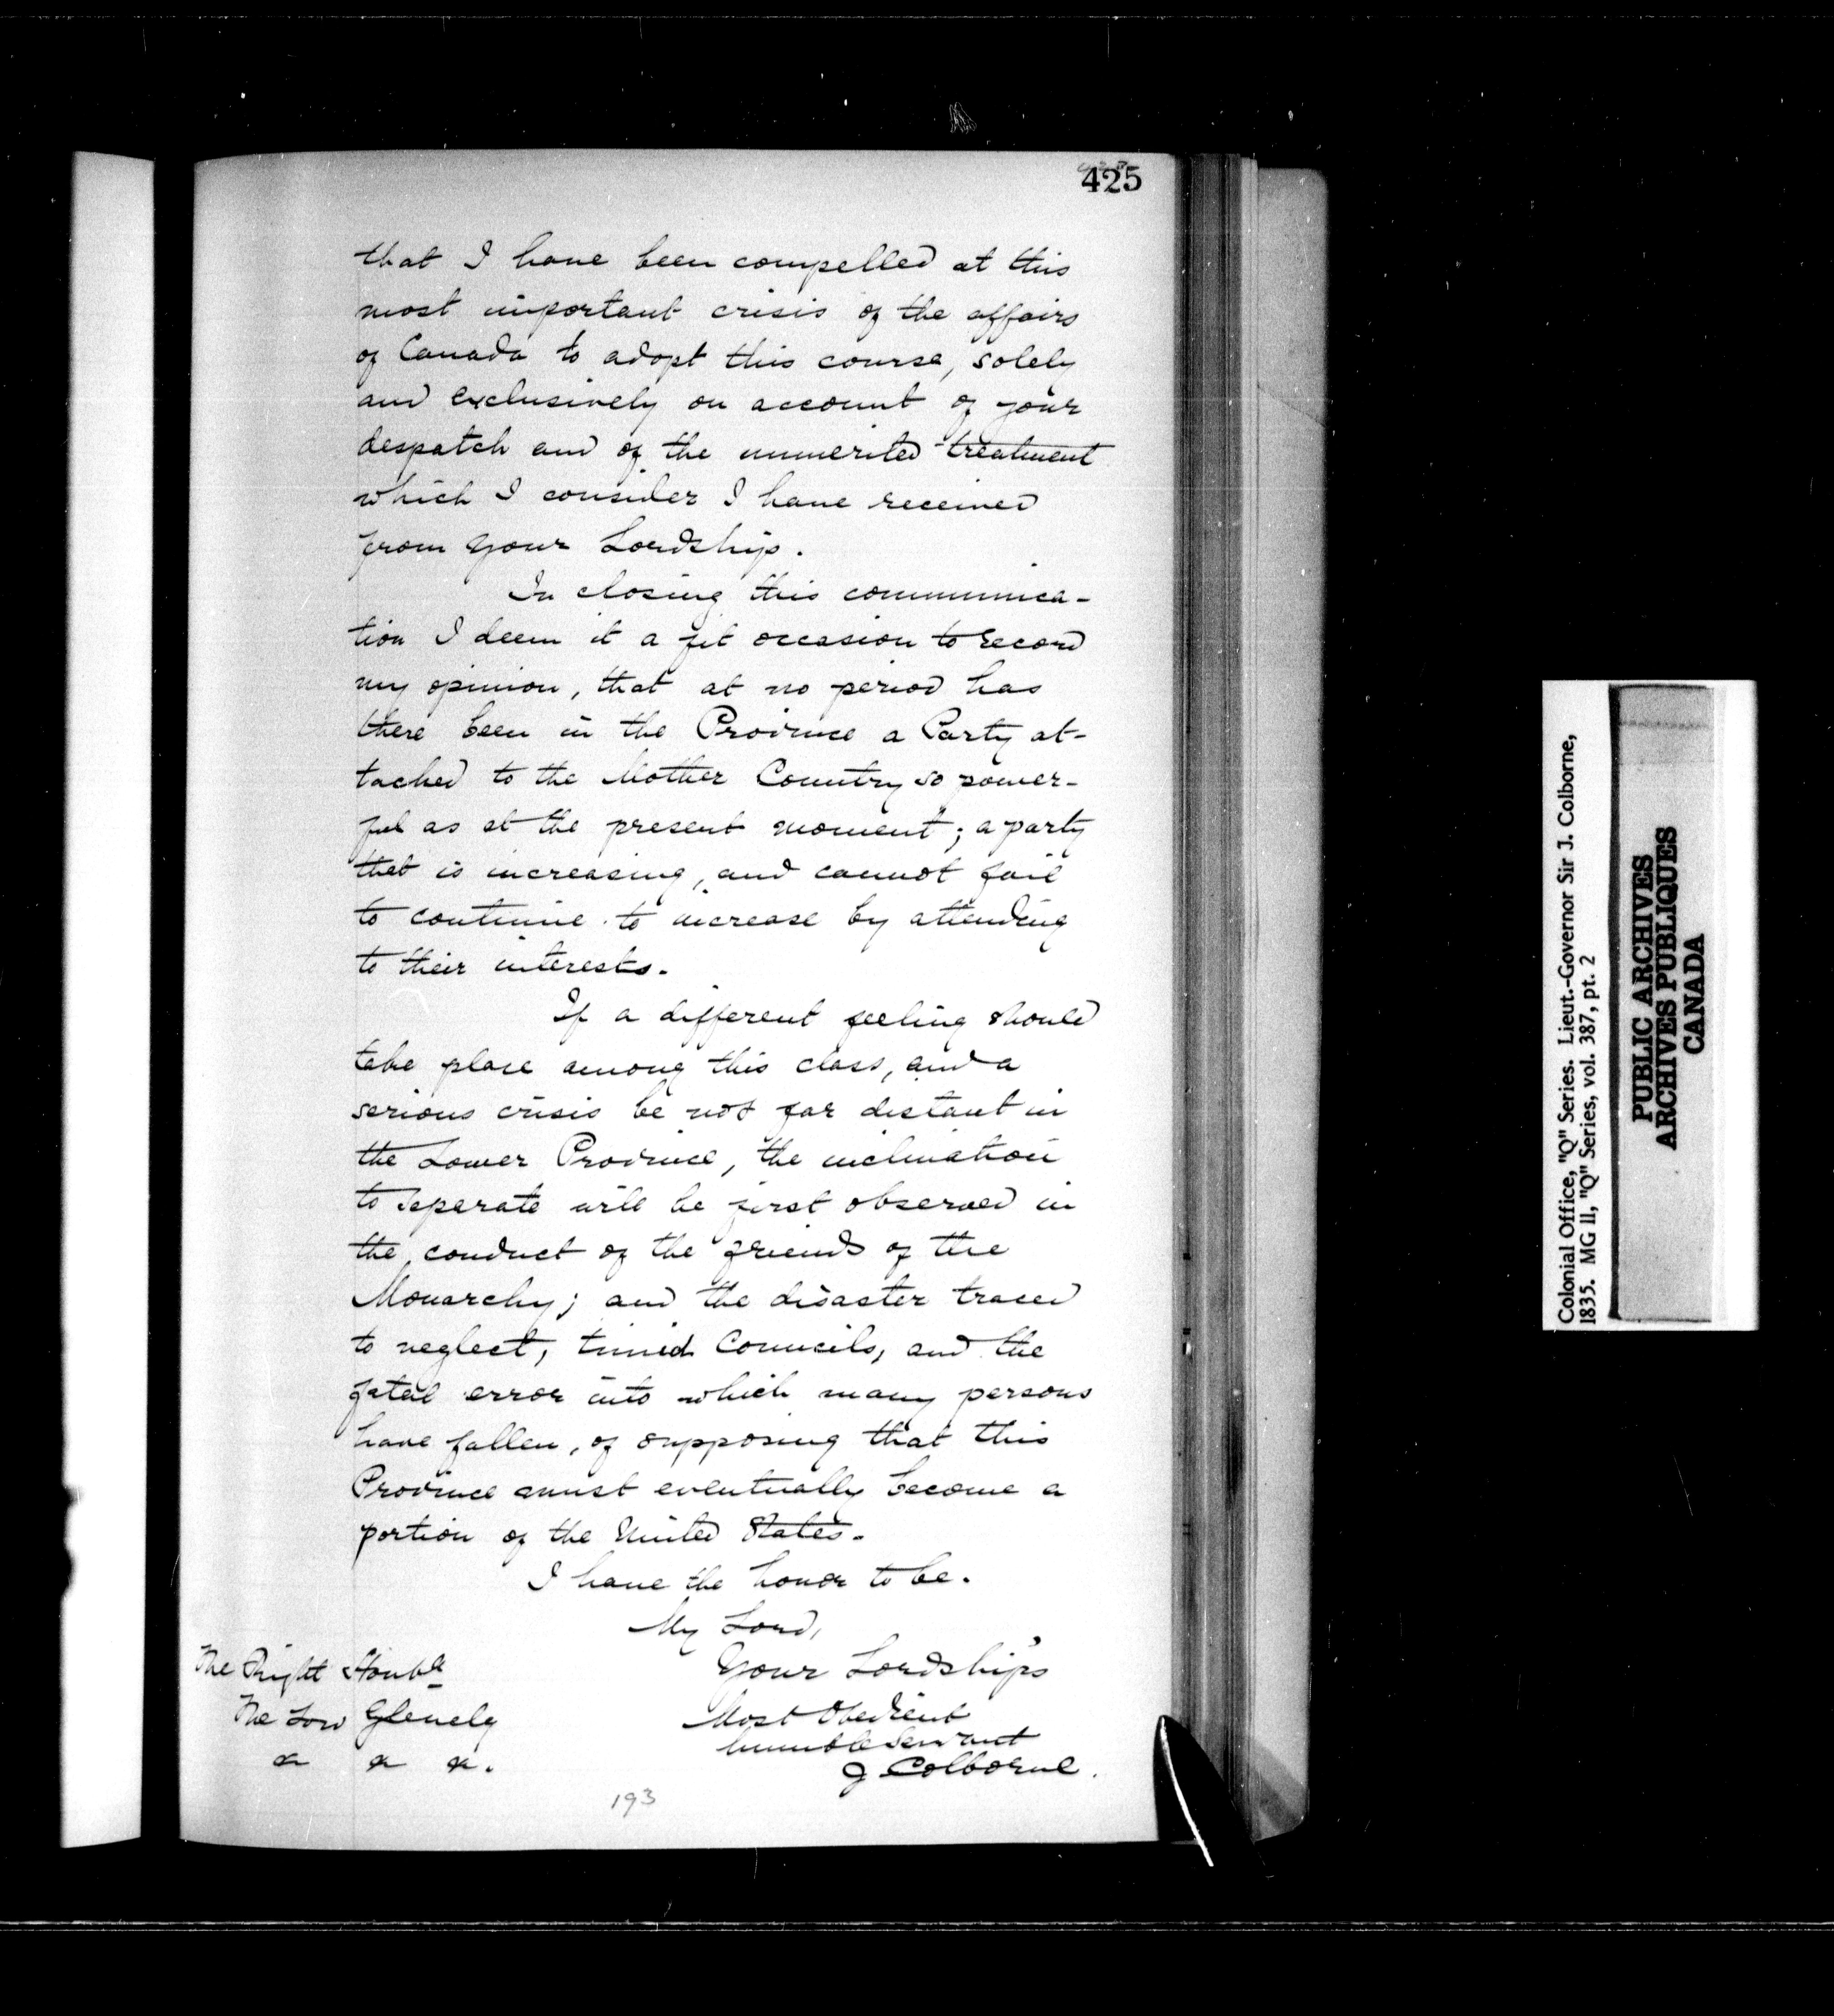 425
that I have been compelled at this
most important crisis of the affairs
of Canada to adopt this course, solely
and exclusively on account of your
despatch and of the unmerited treatment
which I consider I have received
from Your Lordship.
In closing this communica-
tion I deem it a fit occasion to record
my opinion, that at no period has
there been in the Province a Party at-
tached to the Mother Country so power-
ful as at the present moment; a party
that is increasing, and cannot fail
to continue to increase by attending
to their interests.
If a different feeling should
take place among this class, and a
serious crisis be not far distant in
the Lower Province, the inclination
to seperate will be first observed in
the conduct of the friends of the
Monarchy; and the disaster traced
to neglect, timid Councils, and the
fatal error into which many persons
have fallen, of supposing that this
Province must eventually become a
portion of the United States.
I have the honor to be.
My Lord,
Your Lordship's
Most Obedient
humble Servant
J Colborne.
The Right Honble
The Lord Glenelg
&c &c &c.
193
Colonial Office, "Q" Series. Lieut.-Governor Sir J. Colborne,
1835. MG 11, "Q" Series, vol. 387, pt. 2
PUBLIC ARCHIVES
ARCHIVES PUBLIQUES
CANADA